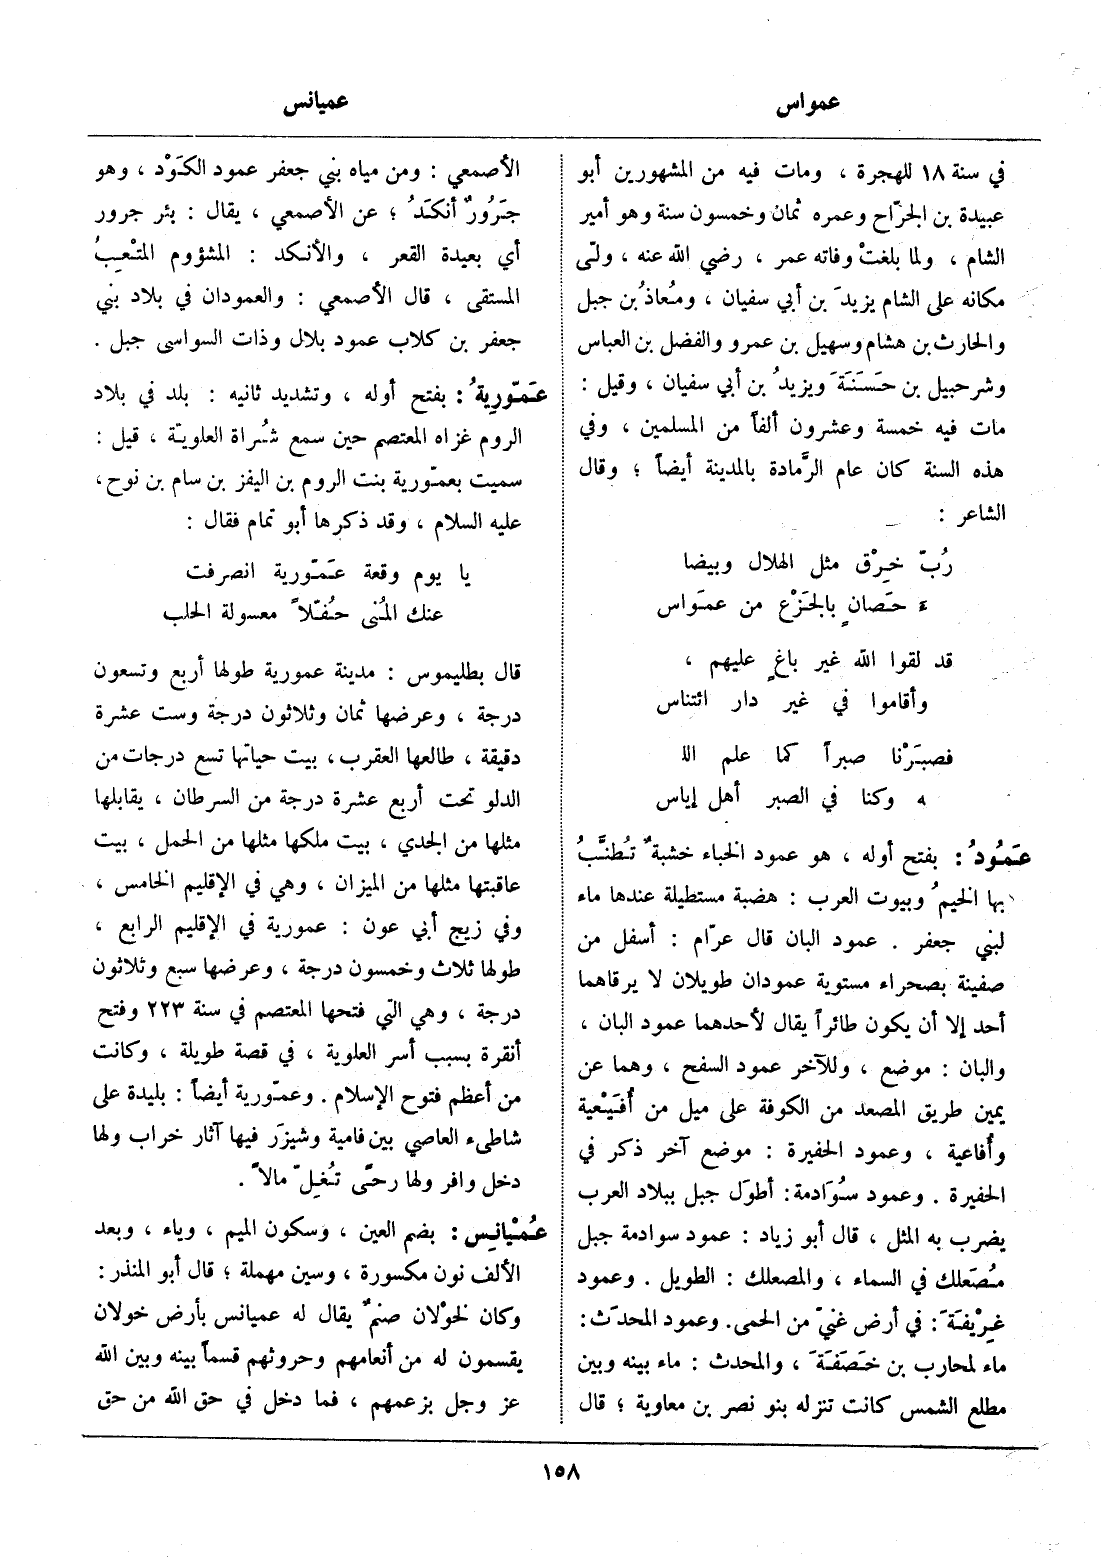 عمواس
عميانس
في سنة ١٨ للهجرة ، ومات فيه من المشهورين أبو
عبيدة بن الجرّاح وعمره ثمان وخمسون سنة وهو أمير
الشام ، ولما بلغتْ وفاته عمر ، رضي الله عنه ، ولّى
مكانه على الشام يزيدَ بن أبي سفيان ، ومُعاذُ بن جبل
والحارث بن هشام وسهيل بن عمرو والفضل بن العباس
وشرحبيل بن حَسَنَةَ ويزيدُ بن أبي سفيان ، وقيل :
مات فيه خمسة وعشرون ألفاً من المسلمين ، وفي
هذه السنة كان عام الرَّمادة بالمدينة أيضاً ؛ وقال
الشاعر :
رُبّ خِرْق مثل الهلال وبيضا
ء حَصانٍ بالجَزْع من عمَواس
قد لقوا الله غير باغٍ عليهم ،
وأقاموا في غير دار ائتناس
فصبَرْنا صبراً كما علم الل
ه وكنا في الصبر أهل إياس
عَمُودُ : بفتح أوله ، هو عمود الخباء خشبةٌ تُطنَّبُ
بها الخيمُ وبيوت العرب : هضبة مستطيلة عندها ماء
لبني جعفر . عمود البان قال عرّام : أسفل من
صفينة بصحراء مستوية عمودان طويلان لا يرقاهما
أحد إلا أن يكون طائراً يقال لأحدهما عمود البان ،
والبان : موضع ، وللآخر عمود السفح ، وهما عن
يمين طريق المصعد من الكوفة على ميل من أُفَيْعية
وأُفاعية ، وعمود الحفيرة : موضع آخر ذكر في
الحفيرة . وعمود سُوَادمة : أطوَل جبل ببلاد العرب
يضرب به المثل ، قال أبو زياد : عمود سوادمة جبل
مُصَعلك في السماء ، والمصعلك : الطويل . وعمود
غِرِيْفَةَ : في أرض غنيّ من الحمى . وعمود المحدّث :
ماء لمحارب بن خَصَفَةَ ، والمحدث : ماء بينه وبين
مطلع الشمس كانت تنزله بنو نصر بن معاوية ؛ قال
الأصمعي : ومن مياه بني جعفر عمود الكَوْد ، وهو
جَرُورٌ أنكَدُ ؛ عن الأصمعي ، يقال : بئر جرور
أي بعيدة القعر ، والأنكد : المشؤوم المتْعِبُ
المستقى ، قال الأصمعي : والعمودان في بلاد بني
جعفر بن كلاب عمود بلال وذات السواسى جبل .
عَمّورِيةُ : بفتح أوله ، وتشديد ثانيه : بلد في بلاد
الروم غزاه المعتصم حين سمع شُراة العلويّة ، قيل :
سميت بعمّورية بنت الروم بن اليفز بن سام بن نوح ،
عليه السلام ، وقد ذكرها أبو تمام فقال :
يا يوم وقعة عَمّورية انصرفت
عنك المُنى حُفّلاً معسولة الحلب
قال بطليموس : مدينة عمورية طولها أربع وتسعون
درجة ، وعرضها ثمان وثلاثون درجة وست عشرة
دقيقة ، طالعها العقرب ، بيت حياتها تسع درجات من
الدلو تحت أربع عشرة درجة من السرطان ، يقابلها
مثلها من الجدي ، بيت ملكها مثلها من الحمل ، بيت
عاقبتها مثلها من الميزان ، وهي في الإقليم الخامس ،
وفي زيج أبي عون : عمورية في الإقليم الرابع ،
طولها ثلاث وخمسون درجة ، وعرضها سبع وثلاثون
درجة ، وهي التي فتحها المعتصم في سنة ٢٢٣ وفتح
أنقرة بسبب أسر العلوية ، في قصة طويلة ، وكانت
من أعظم فتوح الإسلام . وعمّورية أيضاً : بليدة على
شاطىء العاصي بين فامية وشيزَر فيها آثار خراب ولها
دخل وافر ولها رحىً تُغِلّ مالاً .
عُمْيانِس : بضم العين ، وسكون الميم ، وياء ، وبعد
الألف نون مكسورة ، وسين مهملة ؛ قال أبو المنذر :
وكان لخوْلان صنمٌ يقال له عميانس بأرض خولان
يقسمون له من أنعامهم وحروثهم قسماً بينه وبين الله
عز وجل بزعمهم ، فما دخل في حق الله من حق
١٥٨